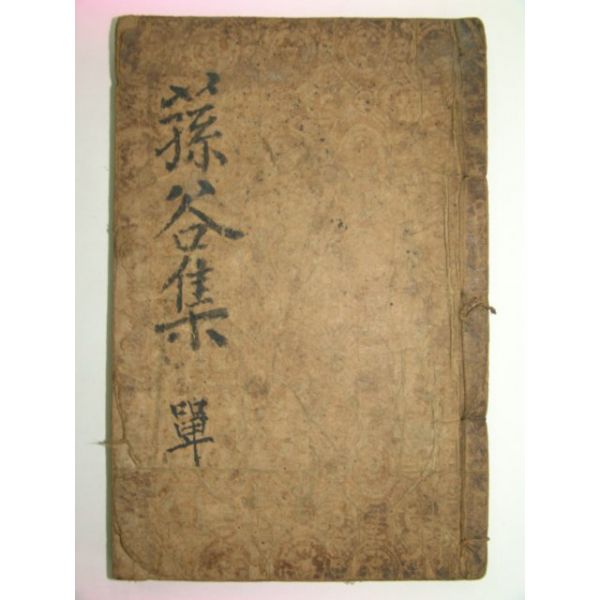 蓀谷集
單